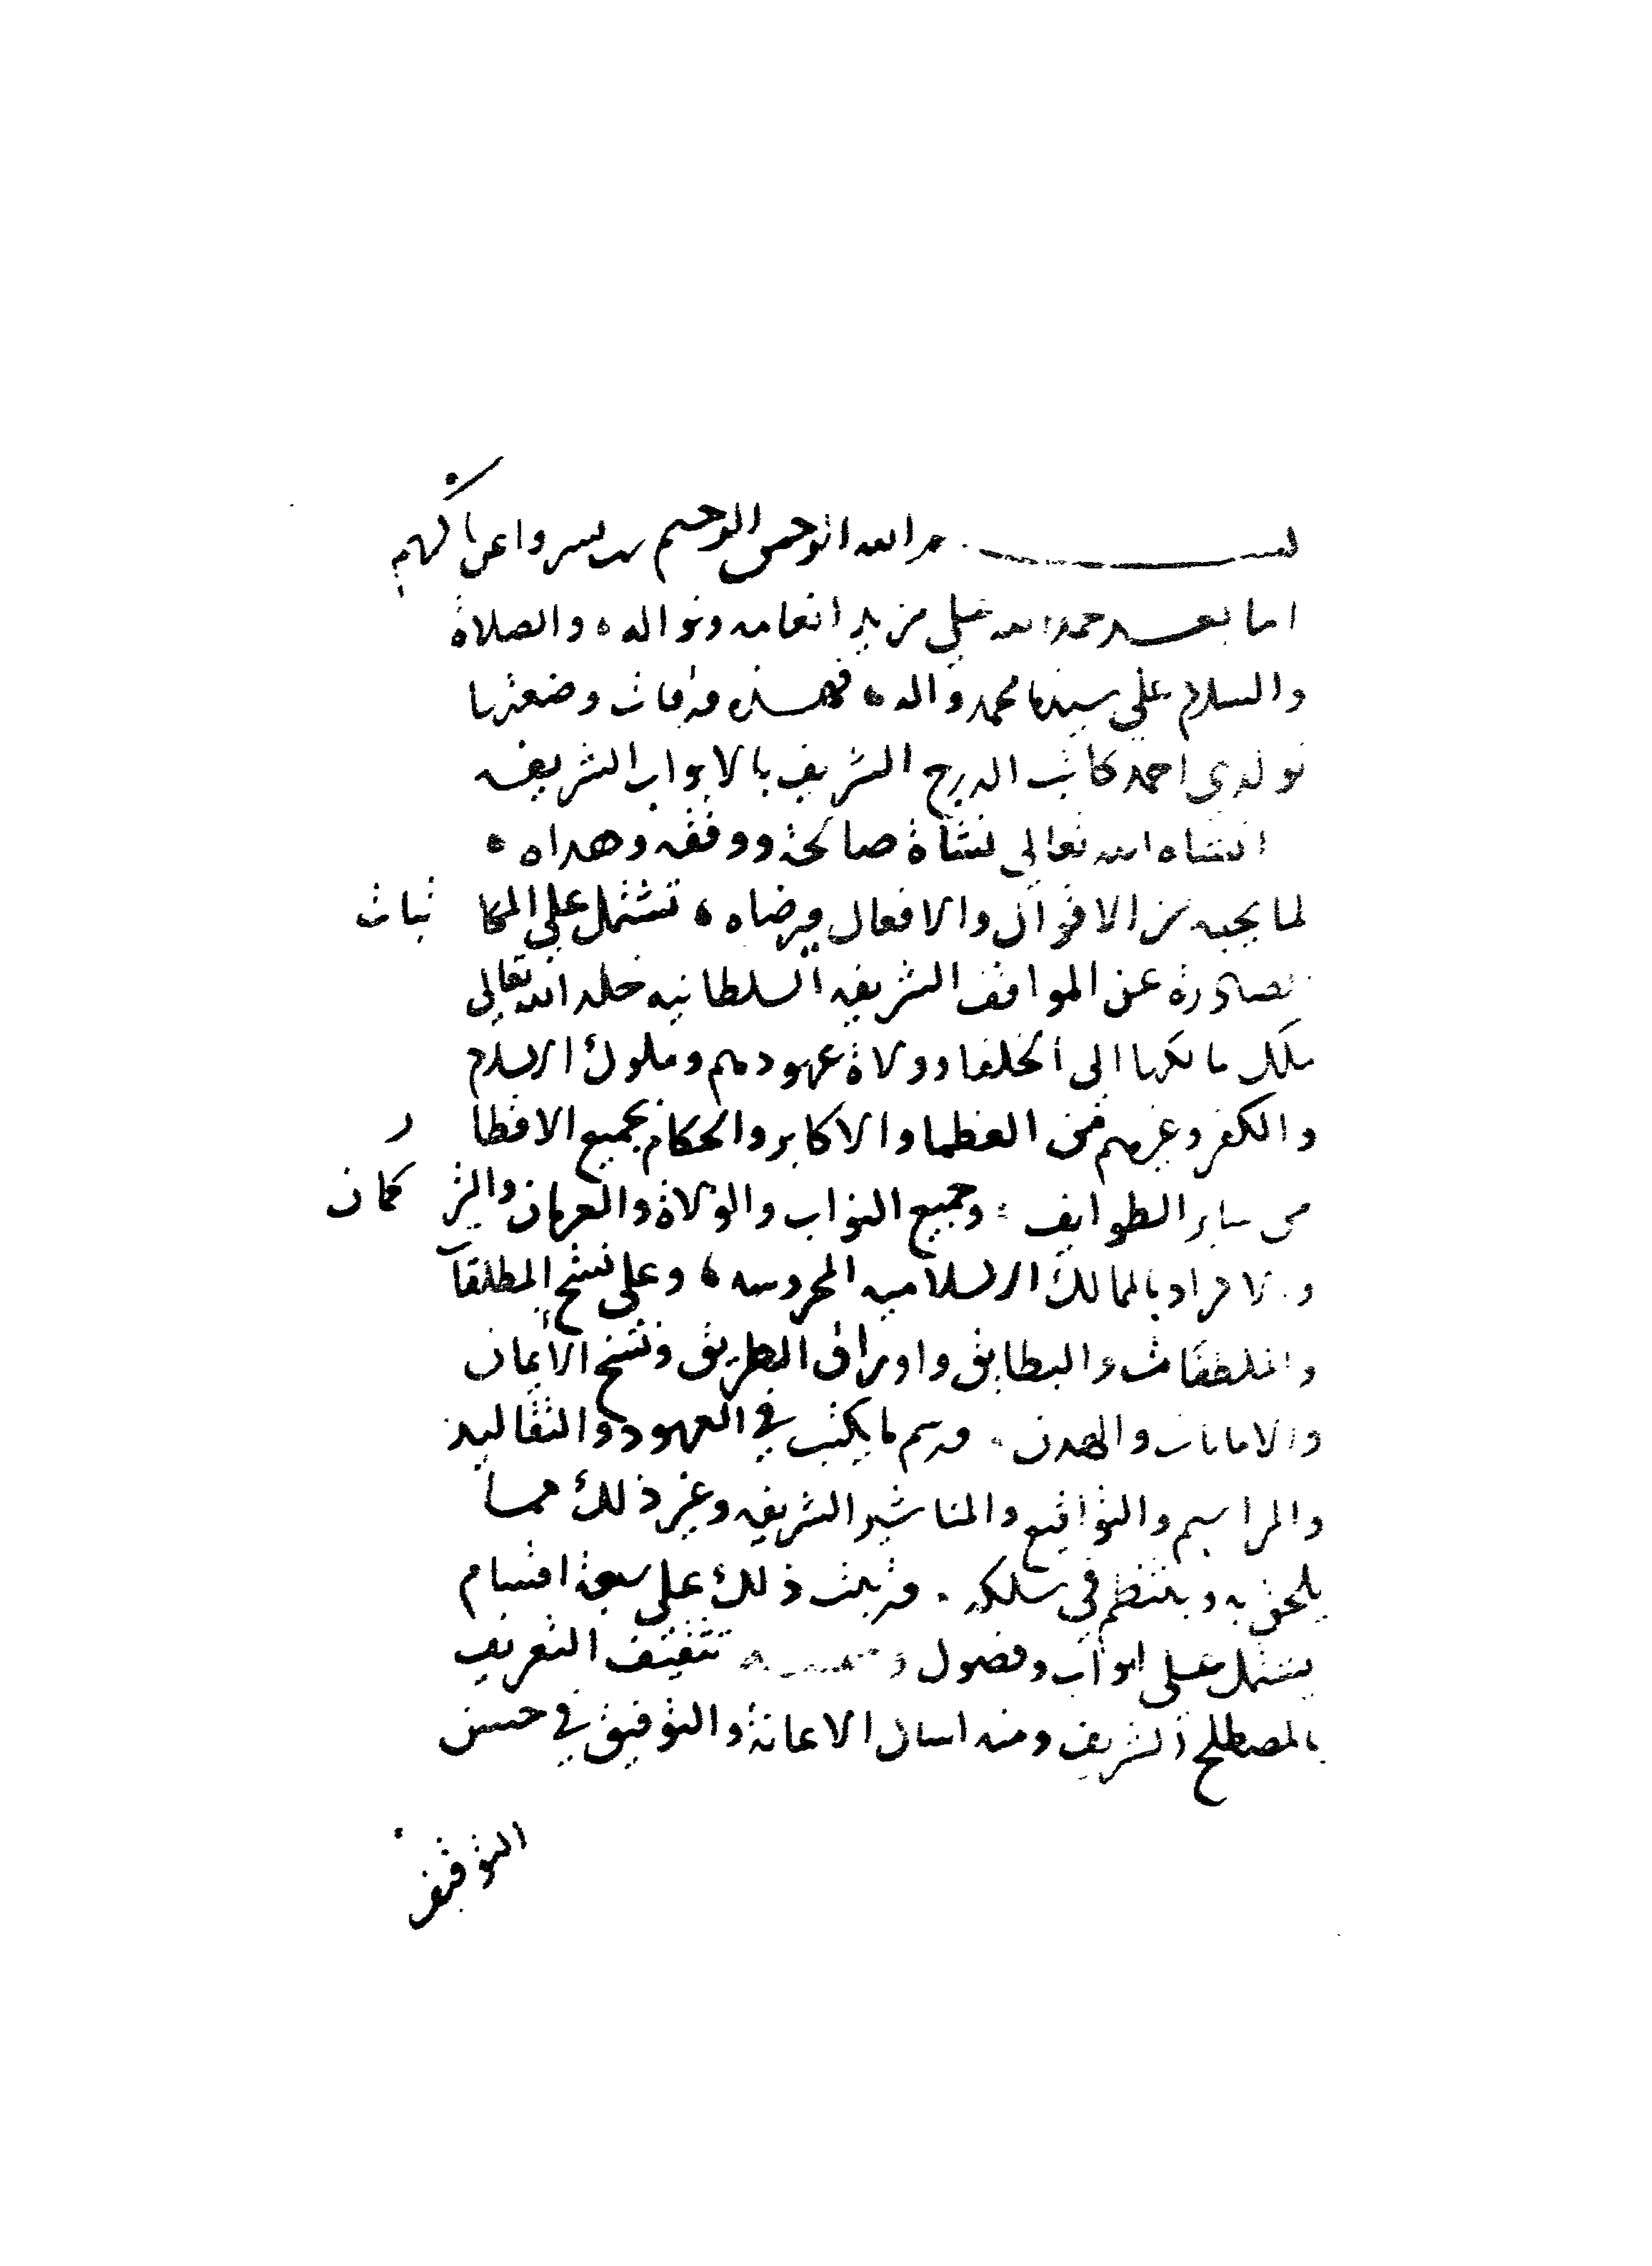 بسم الله الرحمن الرحيم رب يسر واعن يا كريم
اما بعد حمد الله على مزيد انعامه ونواله والصلاة
والسلام على سيدنا محمد واله فهذه ورقات وضعتها
لولدي احمد كاتب الدرج الشريف بالابواب الشريفه
انشاه الله تعالى نشأة صالحة ووفقه وهداه
لما يحبه من الاقوال والافعال ويرضاه تشتمل على المكاتبات
الصادرة عن المواقف الشريفه السلطانيه خلد الله تعالى
ملك مالكها الى الخلفا وولاة عهودهم وملوك الاسلام
والكفر وغيرهم من العظما والاكابر والحكام بجميع الاقطار
من ساير الطوايف وجميع النواب والولاة والعربان والتركمان
والاكراد بالممالك الاسلاميه المحروسه وعلى نسخ المطلقات
والملطفات والبطايق واوراق الطريق ونسخ الأيمان
والامانات والهدن ورسم ما يكتب في العهود والتقاليد
والمراسيم والتواقيع والمناشير الشريفه وغير ذلك مما
يلحق به وينتظم في سلكه ورتبت ذلك على سبعة اقسام
يشتمل على ابواب وفصول وسميته تثقيف التعريف
بالمصطلح الشريف ومنه اسال الاعانة والتوفيق في حسن
التوقيف